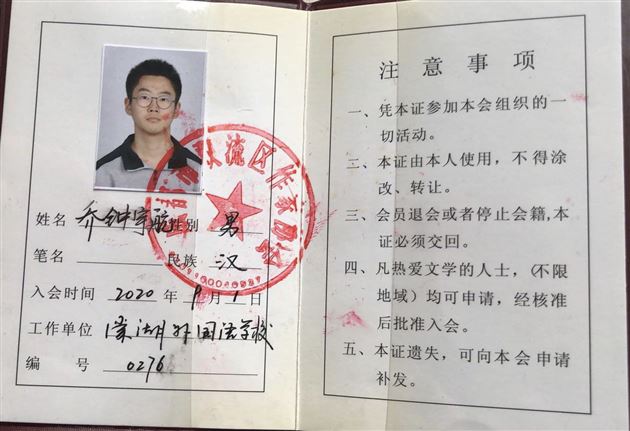 姓名 乔钟宇航 性别 男
笔名 民族 汉
入会时间 2020 年 9 月 1 日
工作单位 棠湖外国语学校
编 号 0276
流区作家协会
注意事项
一、凭本证参加本会组织的一
切活动。
二、本证由本人使用，不得涂
改、转让。
三、会员退会或者停止会籍,本
证必须交回。
四、凡热爱文学的人士，(不限
地域）均可申请，经核准
后批准入会。
五、本证遗失，可向本会申请
补发。